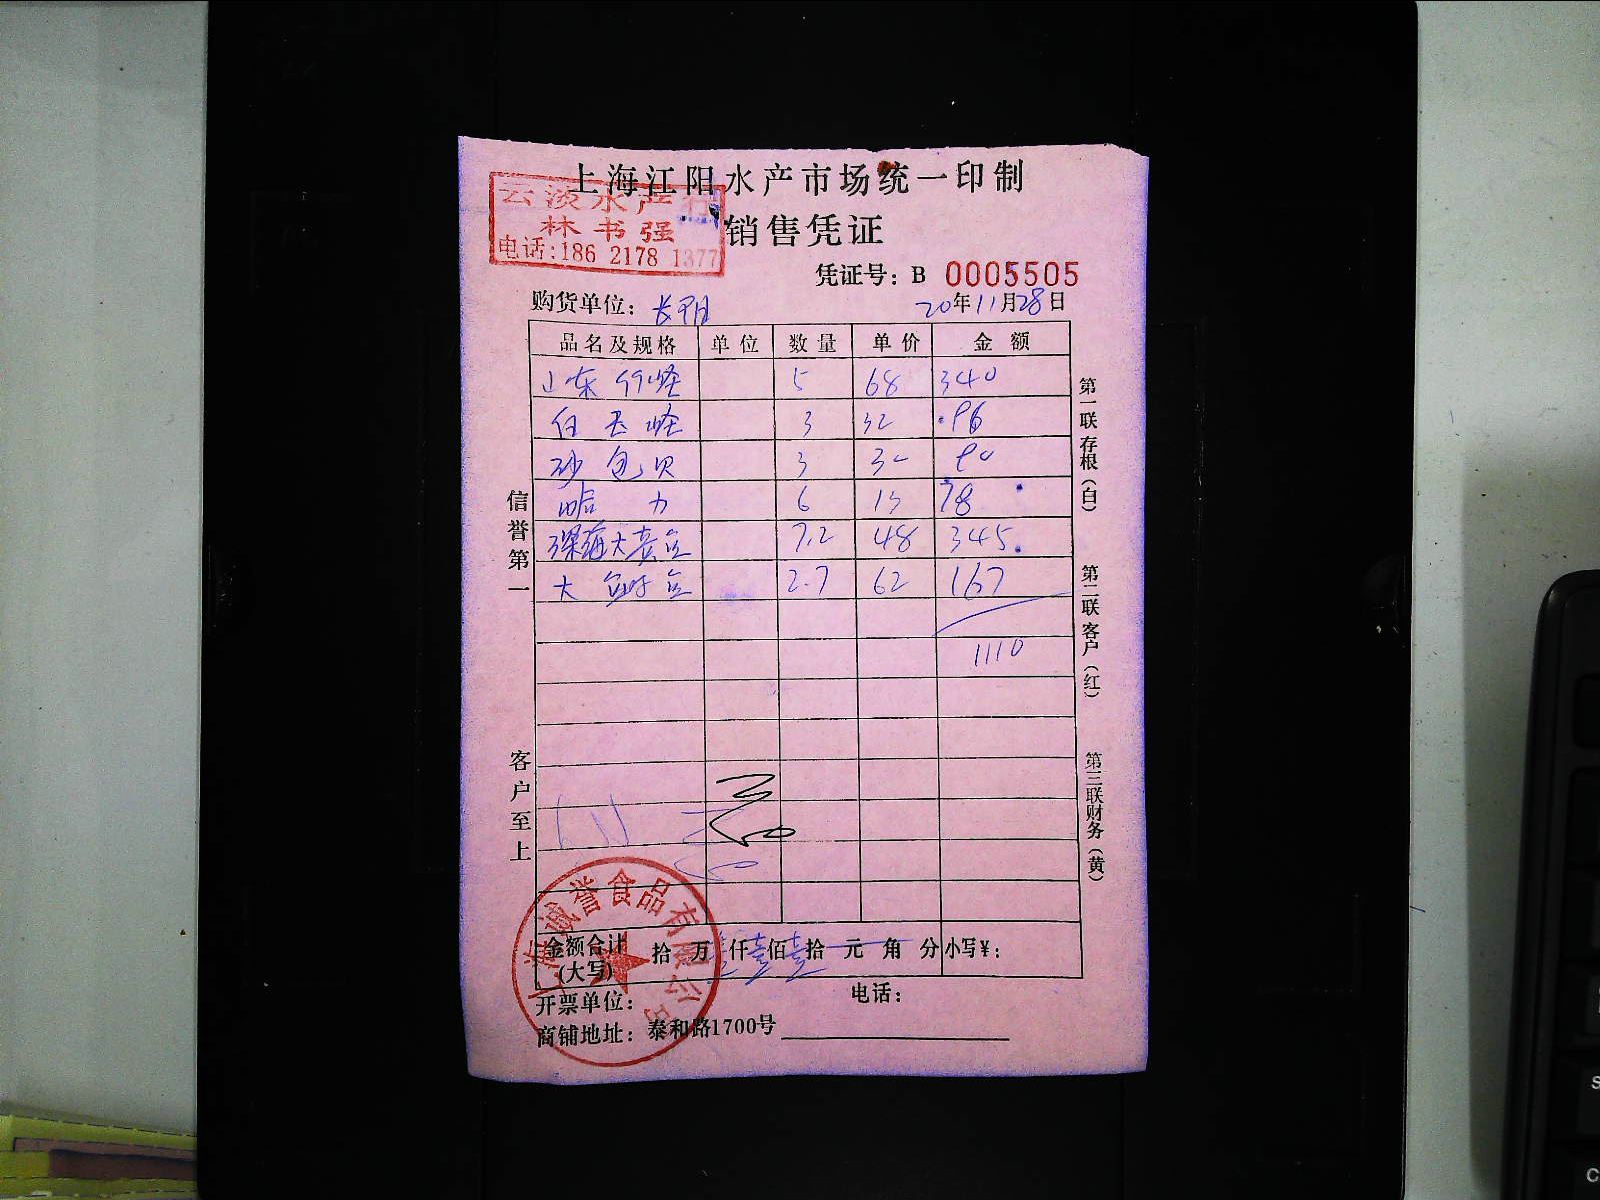 上海江阳水产市场统一印制
云淡水产行
林书强
电话:186 2178 1377
销售凭证
凭证号: B 0005505
购货单位: 长阳
20年11月28日
品名及规格 单位 数量 单价 金额
山东 竹蛏 5 68 340
白玉蛏 3 32 96
砂包贝 3 30 90
哈 力 6 13 78
7.2 48 345
大 2.7 62 167
1110
信誉第一
客户至上
第一联存根(白)
第二联客户(红)
第三联财务(黄)
金额合计(大写) 拾 万 壹仟壹佰壹拾 元 角 分 小写¥:
上海诚誉食品有限公司
开票单位: 电话:
商铺地址: 泰和路1700号